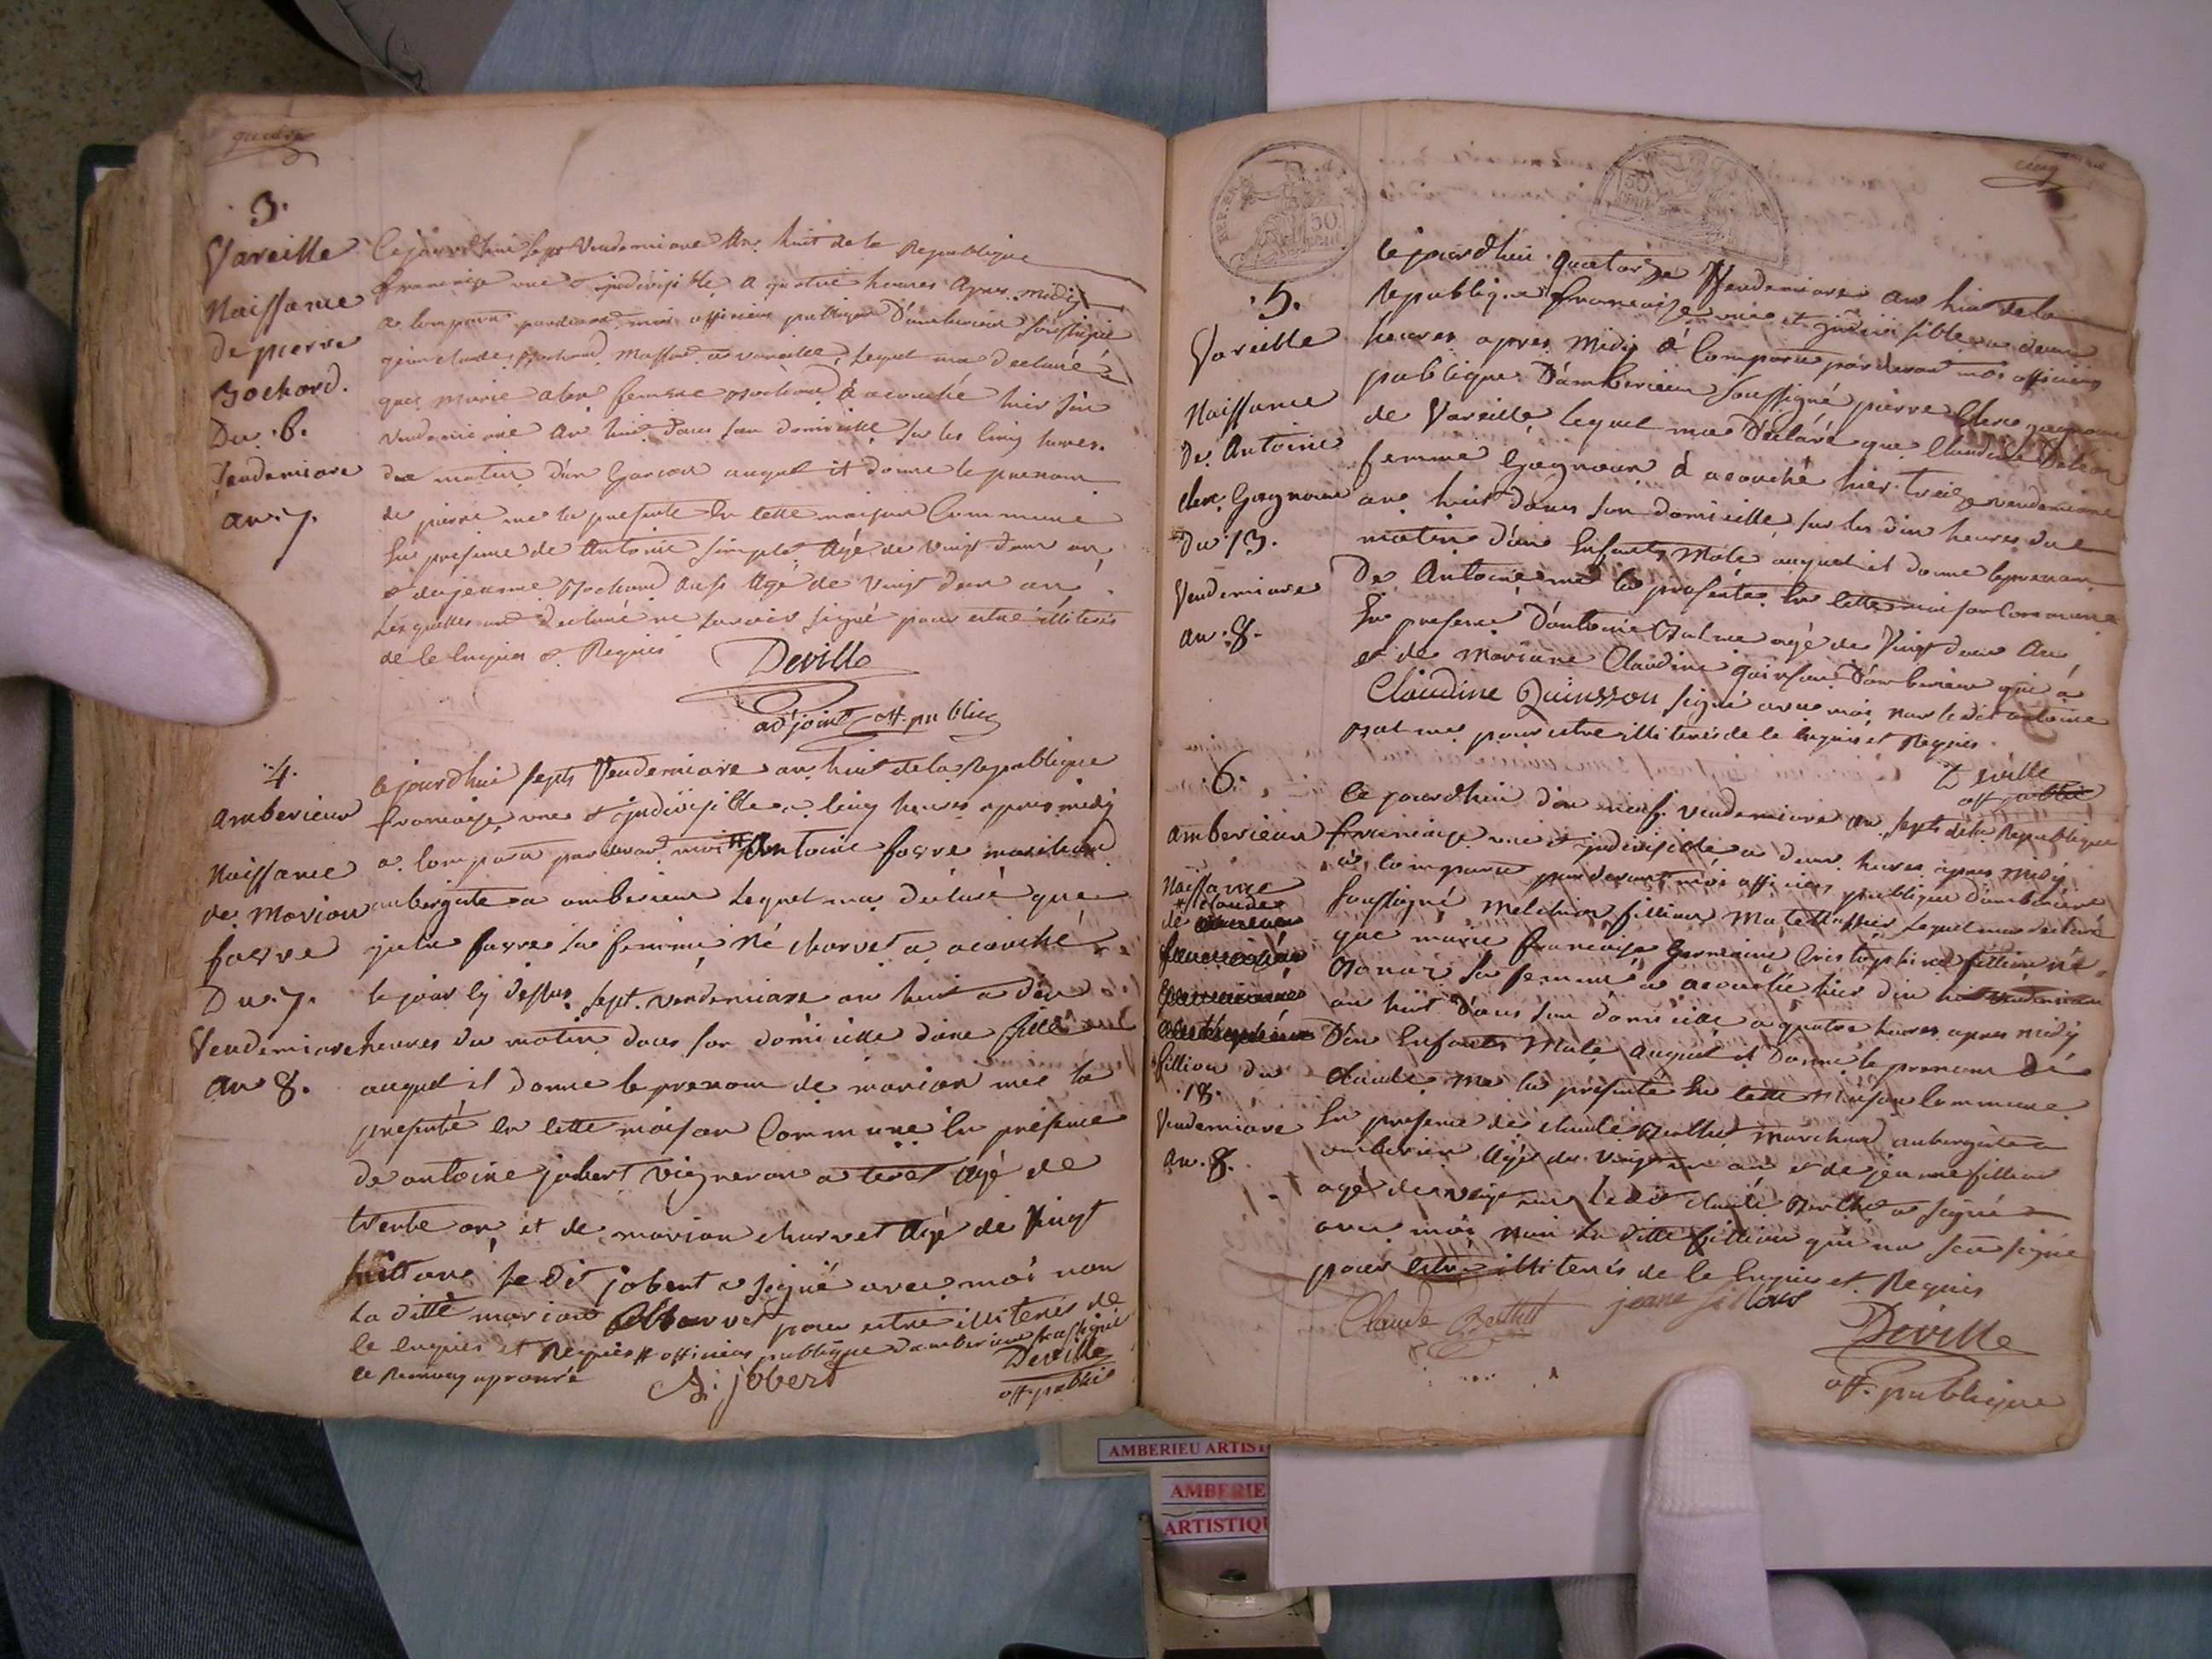 quatre
3.
Vareille
Naissance
De pierre
Bochard.
Du 6.
Vendemiare
an 7.
Cejourdhui sept Vendemiare An huit de la Republique
francaise une & indivisible a quatre heures Apres midy
a comparu pardevant moi officiers publique D'amberieux soussigné
jean claude Bochard a vareille, lequel ma declaré
que marie femme Bochard à acouché hier six
vendemiaire an huit dans son domicille sur les cinq heures
du matin d'un Garcon auquel it donne le prenom
de pierre me la presenté En cette maison Commune
En presence de Antoine simplet Agé de vingt deux ans
& de jeanne Bochard Ausi Agé de vingt deux ans
Lesquelles ont declaré ne savoir signé pour estre illiterés
de ce Enquies & Requis
Deville
adjoint off. public
4.
amberieux
Naissance
de Marion
favre
Du 7.
Vendemiare
an 8.
cejourdhui septs Vendemiare an huit de la Republique
francaise une & indivisible a cinq heures apres midy
a comparu pardevant moi # Antoine favre marchand
aubergiste a amberieux Lequel ma déclaré que
julie favre sa femme né charvet a acouché
le jour cy dessus sept. vendemiare an huit a dix
heures du matin dans son domicille d'une fille
auquel il donne le prenom de marion mee la
presenté en cette maison Commune En présence
de antoine jobert vigneron a Agé de
trente an et de marion charvet Agé de Vingt
huit ans le dit jobert a signé avec moi non
La ditte marion Charvet pour estre illiterés de
ce enquies et Requis # officiers publique damberieux soussigné
le Renvoy aprouvé
A. jobert
Deville
off. public
cinq
REP. FRA.
50
CENT.
50
.5.
Vareille
Naissance
De Antoine
clerc Gagneur
Du 13.
Vendemiare
an 8.
Cejourdhui quatorze Vendemiare an huit de la
Republique francaise une et indivisible a deux
heures apres midy à Comparu pardevant moi officiers
publique D'amberieux soussigné pierre Clerc gagneur
de Vareille, lequel ma Declaré que Claudine
femme Gagneur à acouché hier treize vendemiare
an huit dans son domicille, sur les dix heures du
matin d'un Enfants Male auquel it donne le prenom
De Antoine me la presentée En cette maison Commune
En presence d'antoine agé de Vingt deux An
et de Mariane Claudine quinson d'amberieux qui a
Claudine Quinsson signé avec moi, non le dit antoine
pour estre illiterés de ce enquis et Requis.
Deville
off. public
.6.
amberieux
Naissance
# claude
de
fillion du
.18.
Vendemiare
an. 8.
Ce jourdhui dix neuf. vendemiare an septs de la Republique
francaise une & indivisible a deux heures apres midy
à comparu pardevant moi officiers publique d'amberieux
soussigné Melchior fillion Lequel ma declaré
que marie francoise Germaine Cristophine fillion né
sa femme a acouché hier dix huit vendemiare
an huit dans son domicille a quatre heures apres midy
D'un Enfants Male auquel it Donne le prenom Dé
Claude, Me la presente En cette Maison Commune
En presence dé claude Berthet marchand aubergiste a
amberieux Agé de vingt an et de jeanne fillion
agé de ledit claude Berthet a signé
avec moi non la ditte fillion qui na seu signé
pour estre illiterés de ce Enquies et Requis
Claude Berthet
jeane fillion
Deville
off. publique
AMBERIEU ARTIST
AMBERIE
ARTISTIQU